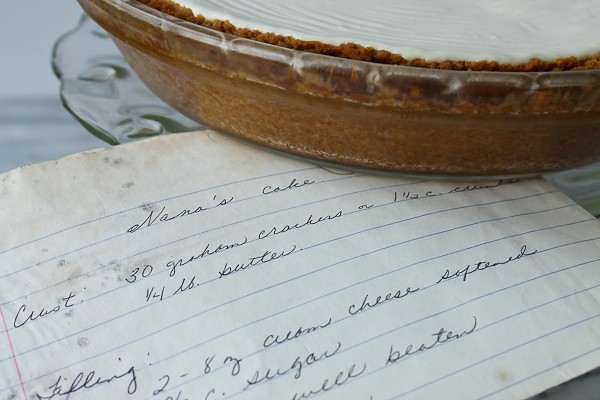 Nana's cake
30 graham crackers or 1 1/2 c crumbs
Crust: 1/4 lb. butter.
Filling:
2 - 8 oz cream cheese softened
c. sugar
well beaten